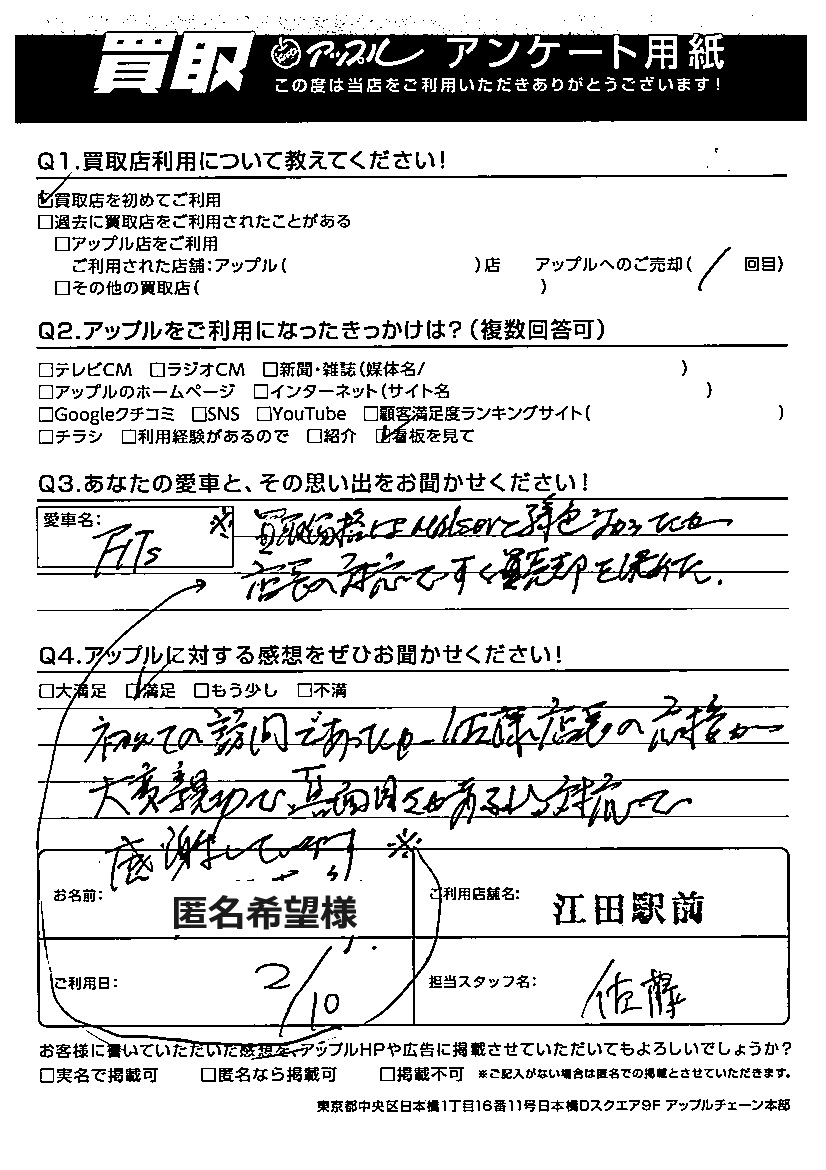 買取 アップル アンケート用紙
この度は当店をご利用いただきありがとうございます!
Q1.買取店利用について教えてください!
☑買取店を初めてご利用
□過去に買取店をご利用されたことがある
□アップル店をご利用
ご利用された店舗:アップル( )店 アップルへのご売却( / 回目)
□その他の買取店( )
Q2.アップルをご利用になったきっかけは?(複数回答可)
□テレビCM □ラジオCM □新聞・雑誌(媒体名/ )
□アップルのホームページ □インターネット(サイト名 )
□Googleクチコミ □SNS □YouTube □顧客満足度ランキングサイト( )
□チラシ □利用経験があるので □紹介 ☑看板を見て
Q3.あなたの愛車と、その思い出をお聞かせください!
愛車名: ※ 買取価格は
店長の対応ですぐ売却を決めた.
Q4.アップルに対する感想をぜひお聞かせください!
□大満足 ☑満足 □もう少し □不満
初めての訪問であったが 佐藤店長の応接が
大変親切で、真面目さがあふれる対応で
感謝しています ※
お名前: 匿名希望様 ご利用店舗名: 江田駅前
ご利用日: 2/10 担当スタッフ名: 佐藤
お客様に書いていただいた感想を、アップルHPや広告に掲載させていただいてもよろしいでしょうか?
□実名で掲載可 □匿名なら掲載可 □掲載不可 ※ご記入がない場合は匿名での掲載とさせていただきます。
東京都中央区日本橋1丁目16番11号日本橋Dスクエア9F アップルチェーン本部